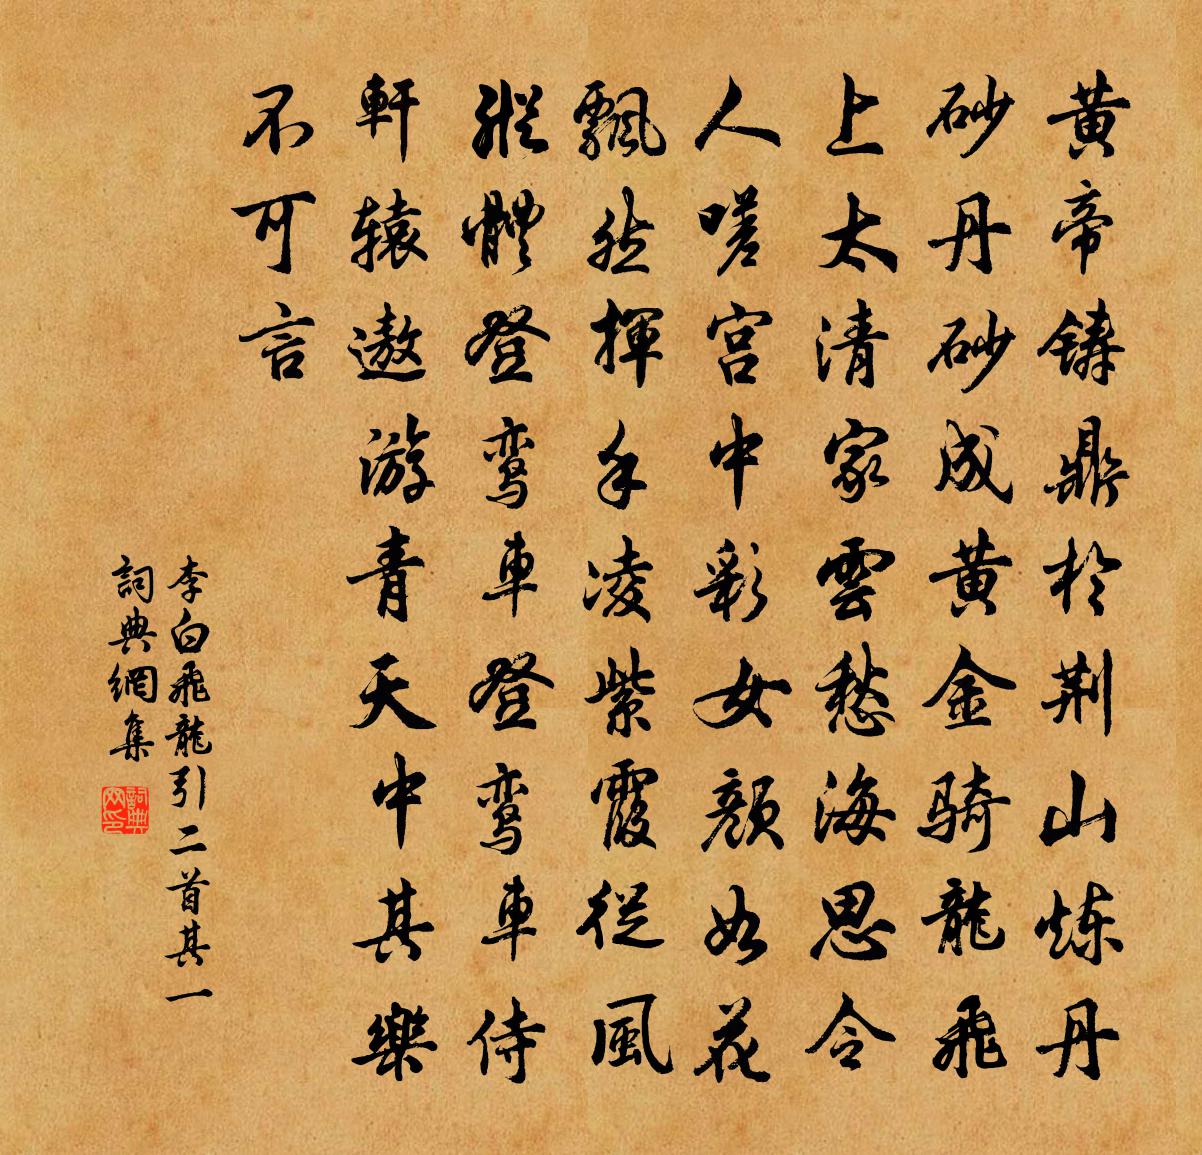 黄帝鑄鼎於荆山炼丹
砂丹砂成黄金骑龍飛
上太清家雲愁海思令
人嗟宫中彩女顔如花
飄然揮手凌紫霞從風
縱體登鸾車登鸾車侍
軒辕遨游青天中其樂
不可言
李白飛龍引二首其一
詞典網集
詞典網印